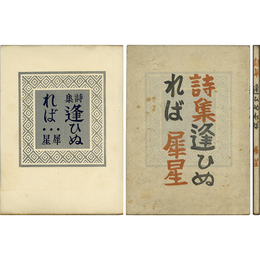 詩集
逢ひぬ
れば・・・
犀星
詩集逢ひぬ
れば 犀星
逢ひぬれば